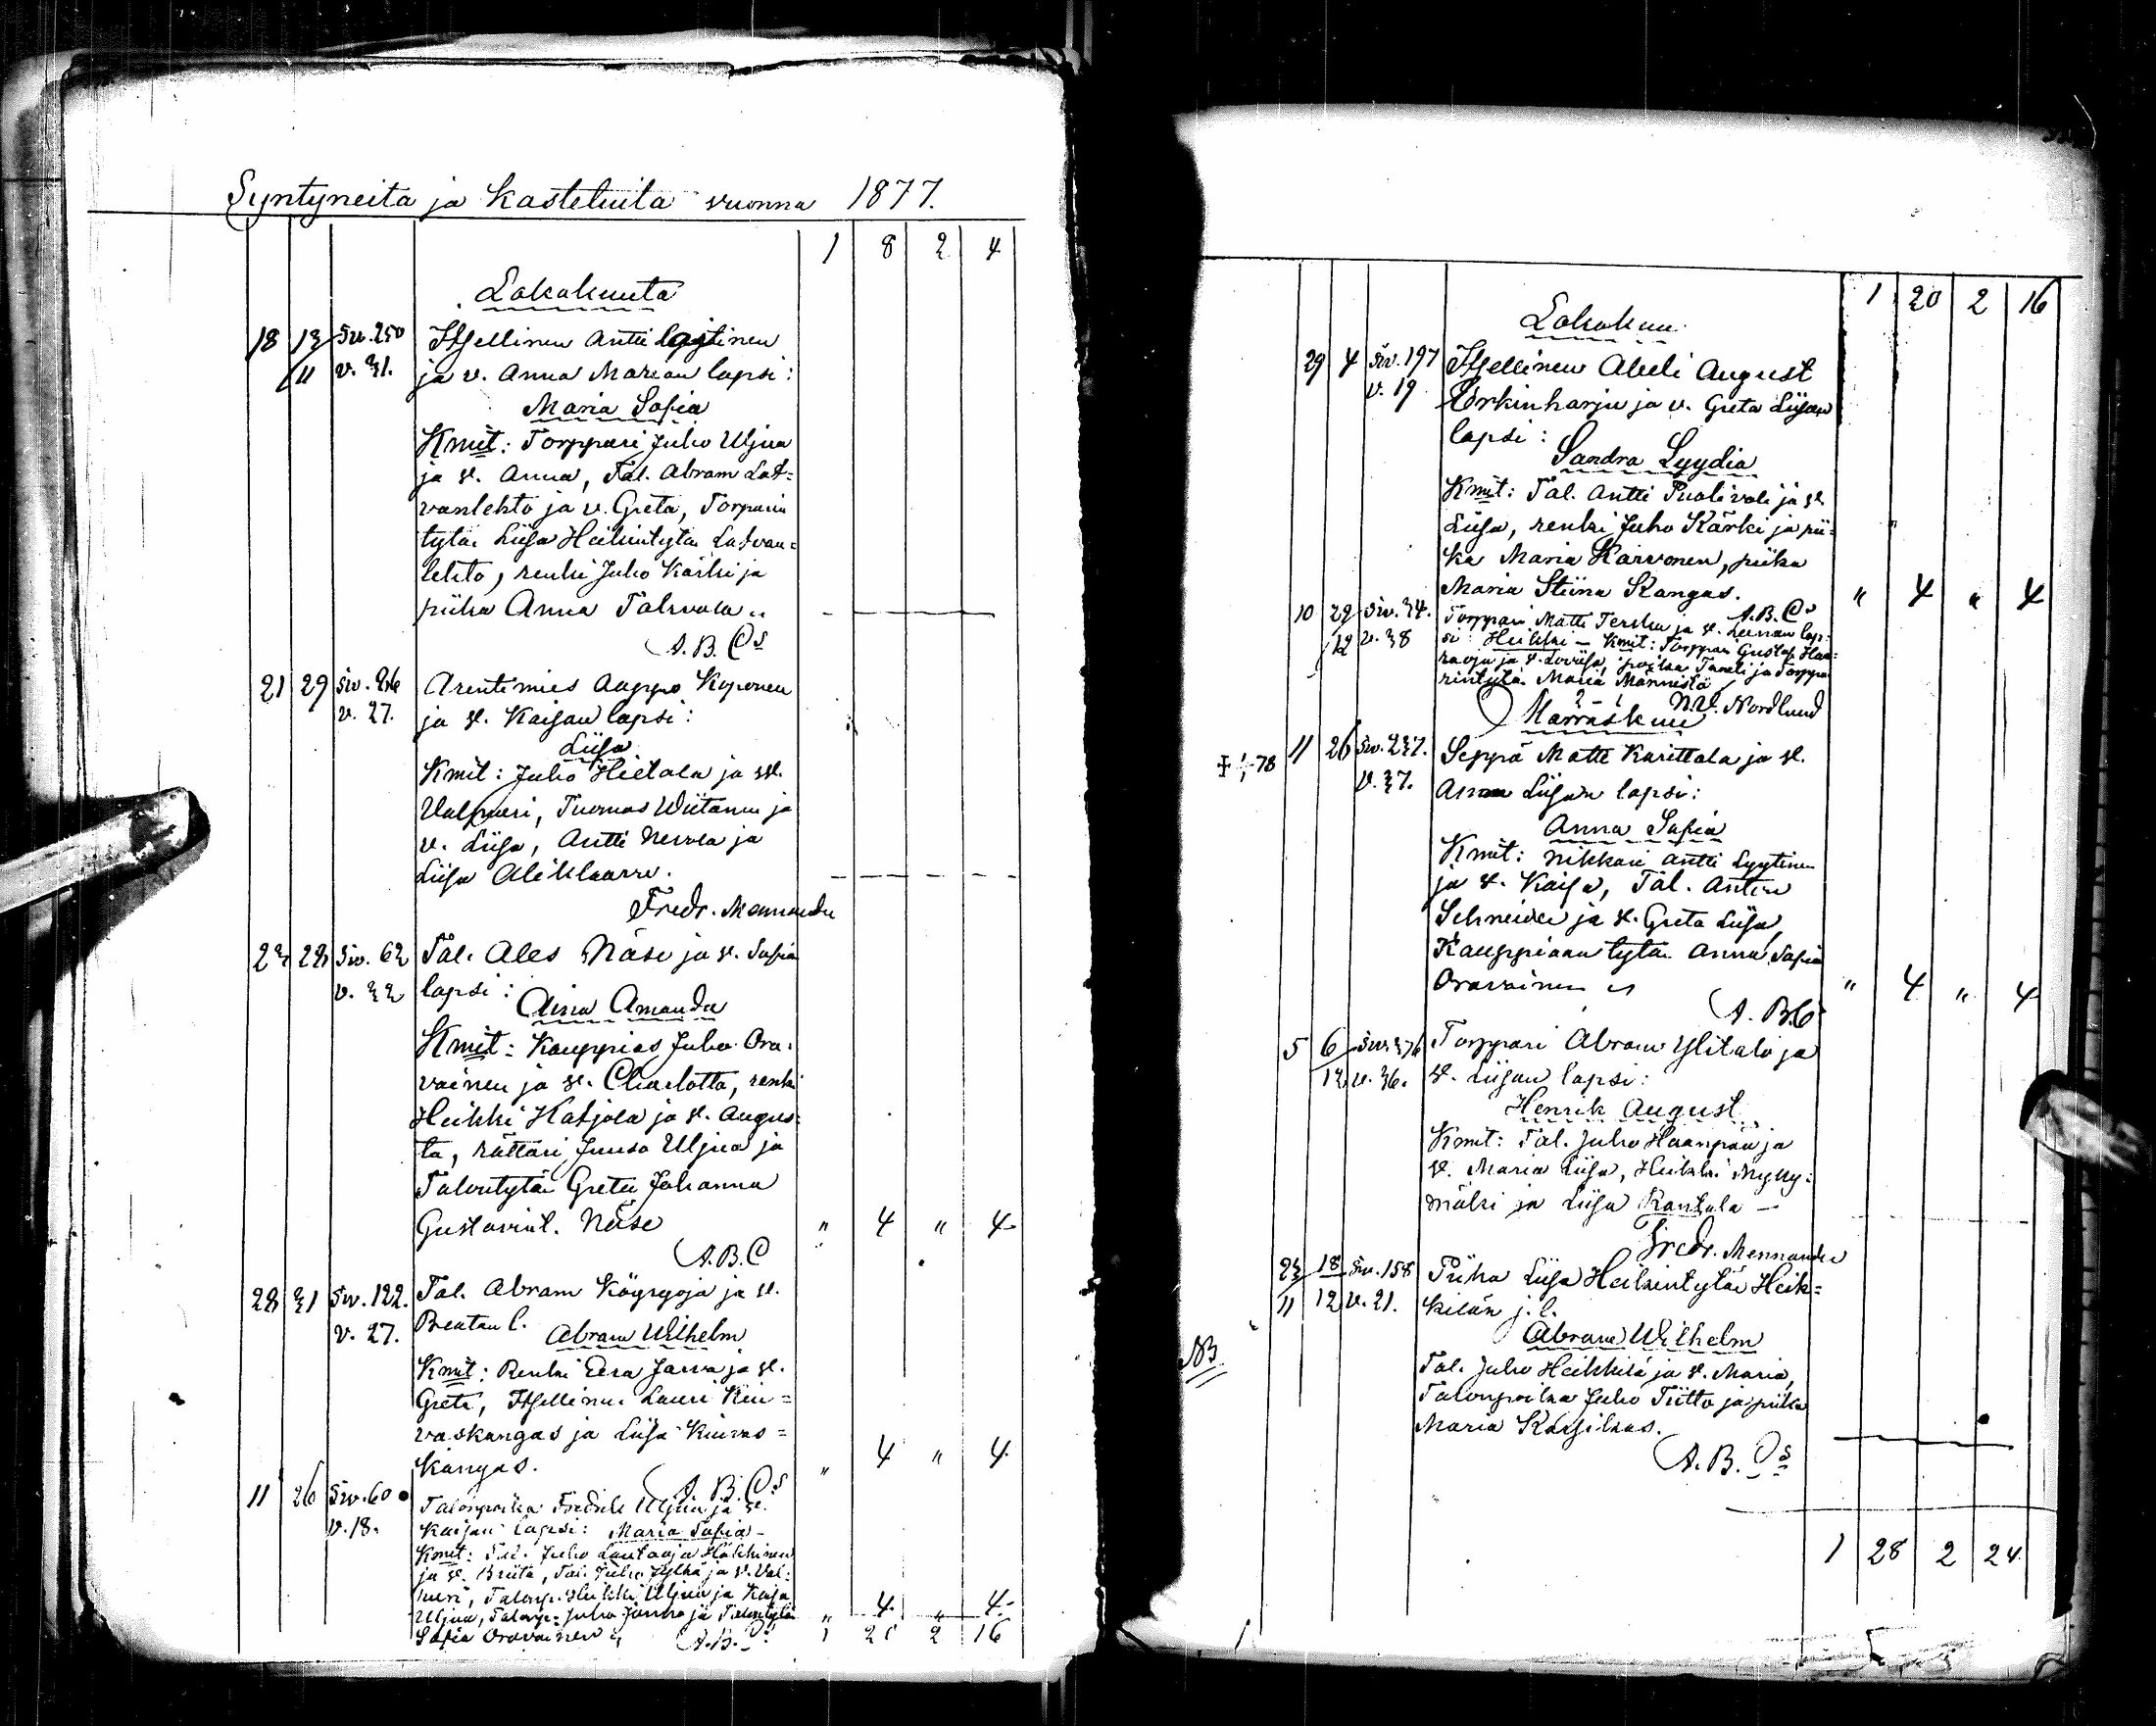 Syntyneitä ja kastetuita vuonna 1877.
1 8 2 4
Lokakuuta
18 13/11 Siv. 250 Itsellinen Antti
v. 31. ja v. Anna Marian lapsi:
Maria Sofia
Kmit: Torppari Juho Uljua
ja v. Anna, Tal. Abram Lat=
vanlehto ja v. Greta, Torparin
tytär Liisa Heikintytär Latvan=
lehto, renki Juho Kärki ja
piika Anna Tolvola
A. B. Cs
21 29 Siv. 26 Arentimies Auppo Koponen
v. 27. ja v. Kaisan lapsi:
Liisa
Kmit: Juho Hietala ja v.
Valpuri, Tuomas Wiitanen ja
v. Liisa, Antti Nevala ja
Liisa
Fredr. Mennander
23 28 Siv. 62 Tal. Ales Näse ja v. Sofia
v. 32 lapsi:
Aina Amanda
Kmit: Kauppias Juho Ora=
vainen ja v. Charlotta, renki
Heikki Katjola ja v. Augus=
ta, rättäri Juuso Uljua ja
Talontytär Greta Johanna
Gustavint. Näse " 4 " 4
A. B. C
28 31 Siv. 122. Tal. Abram Köyryoja ja v.
v. 27. Beatan l.
Abram Wilhelm
Kmit: Renki Eera Jarva ja v.
Greta, Itsellinen Lauri Kiu=
vaskangas ja Liisa Kiuvas=
kangas. " 4 " 4
A. B. Cs
11 26 Siv. 60 Talonpoika Fredrik Uljua ja v.
v. 18. Kaisan lapsi: Maria Sofia -
Kmit: Tal. Juho Lautaoja
ja v. Briita, Tal. Juho Jylhä ja v. Val=
puri, Talonp. Heikki Uljua ja Kaisa
Uljua, Talonp. Juho ja Talontytär " 4 " 4
Sofia Oravainen A. B. Cs 1 20 2 16
1 20 2 16
Lokakuu
29 4 Siv. 197 Itsellinen Abeli August
v. 19 Erkinharju ja v. Greta Liisan
lapsi:
Sandra Lyydia
Kmit: Tal. Antti Puoliväli ja v.
Liisa, renki Juho Kärki ja pii=
ka Maria Karvonen, piika
Maria Stiina Kangas. " 4 " 4
A. B. Cs
10 29/12 Siv. 34. Torppari Matti ja v. Leenan lap=
v. 38 si: Heikki - Kmit: Torppari Gustaf Haa=
raoja ja v. Loviisa, poika Taneli ja Torppa
rintytär Maria Männistö
N. V. Nordlund
Marraskuu
1/1 78 11 26 Siv. 237. Seppä Matti Karittala ja v.
v. 37. Anna Liisan lapsi:
Anna Sofia
Kmit: Nikkari Antti Lyytinen
ja v. Kaisa, Tal. Anton
Schneider ja v. Greta Liisa,
Kauppiaan tytär Anna Sofia
Oravainen " 4 " 4
A. B. C
5 6/12 Siv. 376 Torppari Abram Ylitalo ja
v. 36. v. Liisan lapsi:
Henrik August
Kmit: Tal. Juho Haanpää ja
v. Maria Liisa, Heikki Mylly=
mäki ja Liisa Rantala -
Fredr. Mennander
23/11 18/12 Siv. 158 Piika Liisa Heikintytär Heik=
v. 21. kilän j. l.
NB
Abram Wilhelm
Tal. Juho Heikkilä ja v. Maria,
Talonpoika Juho Tiitto ja piika
Maria Karsikas.
A. B. Cs
1 28 2 24